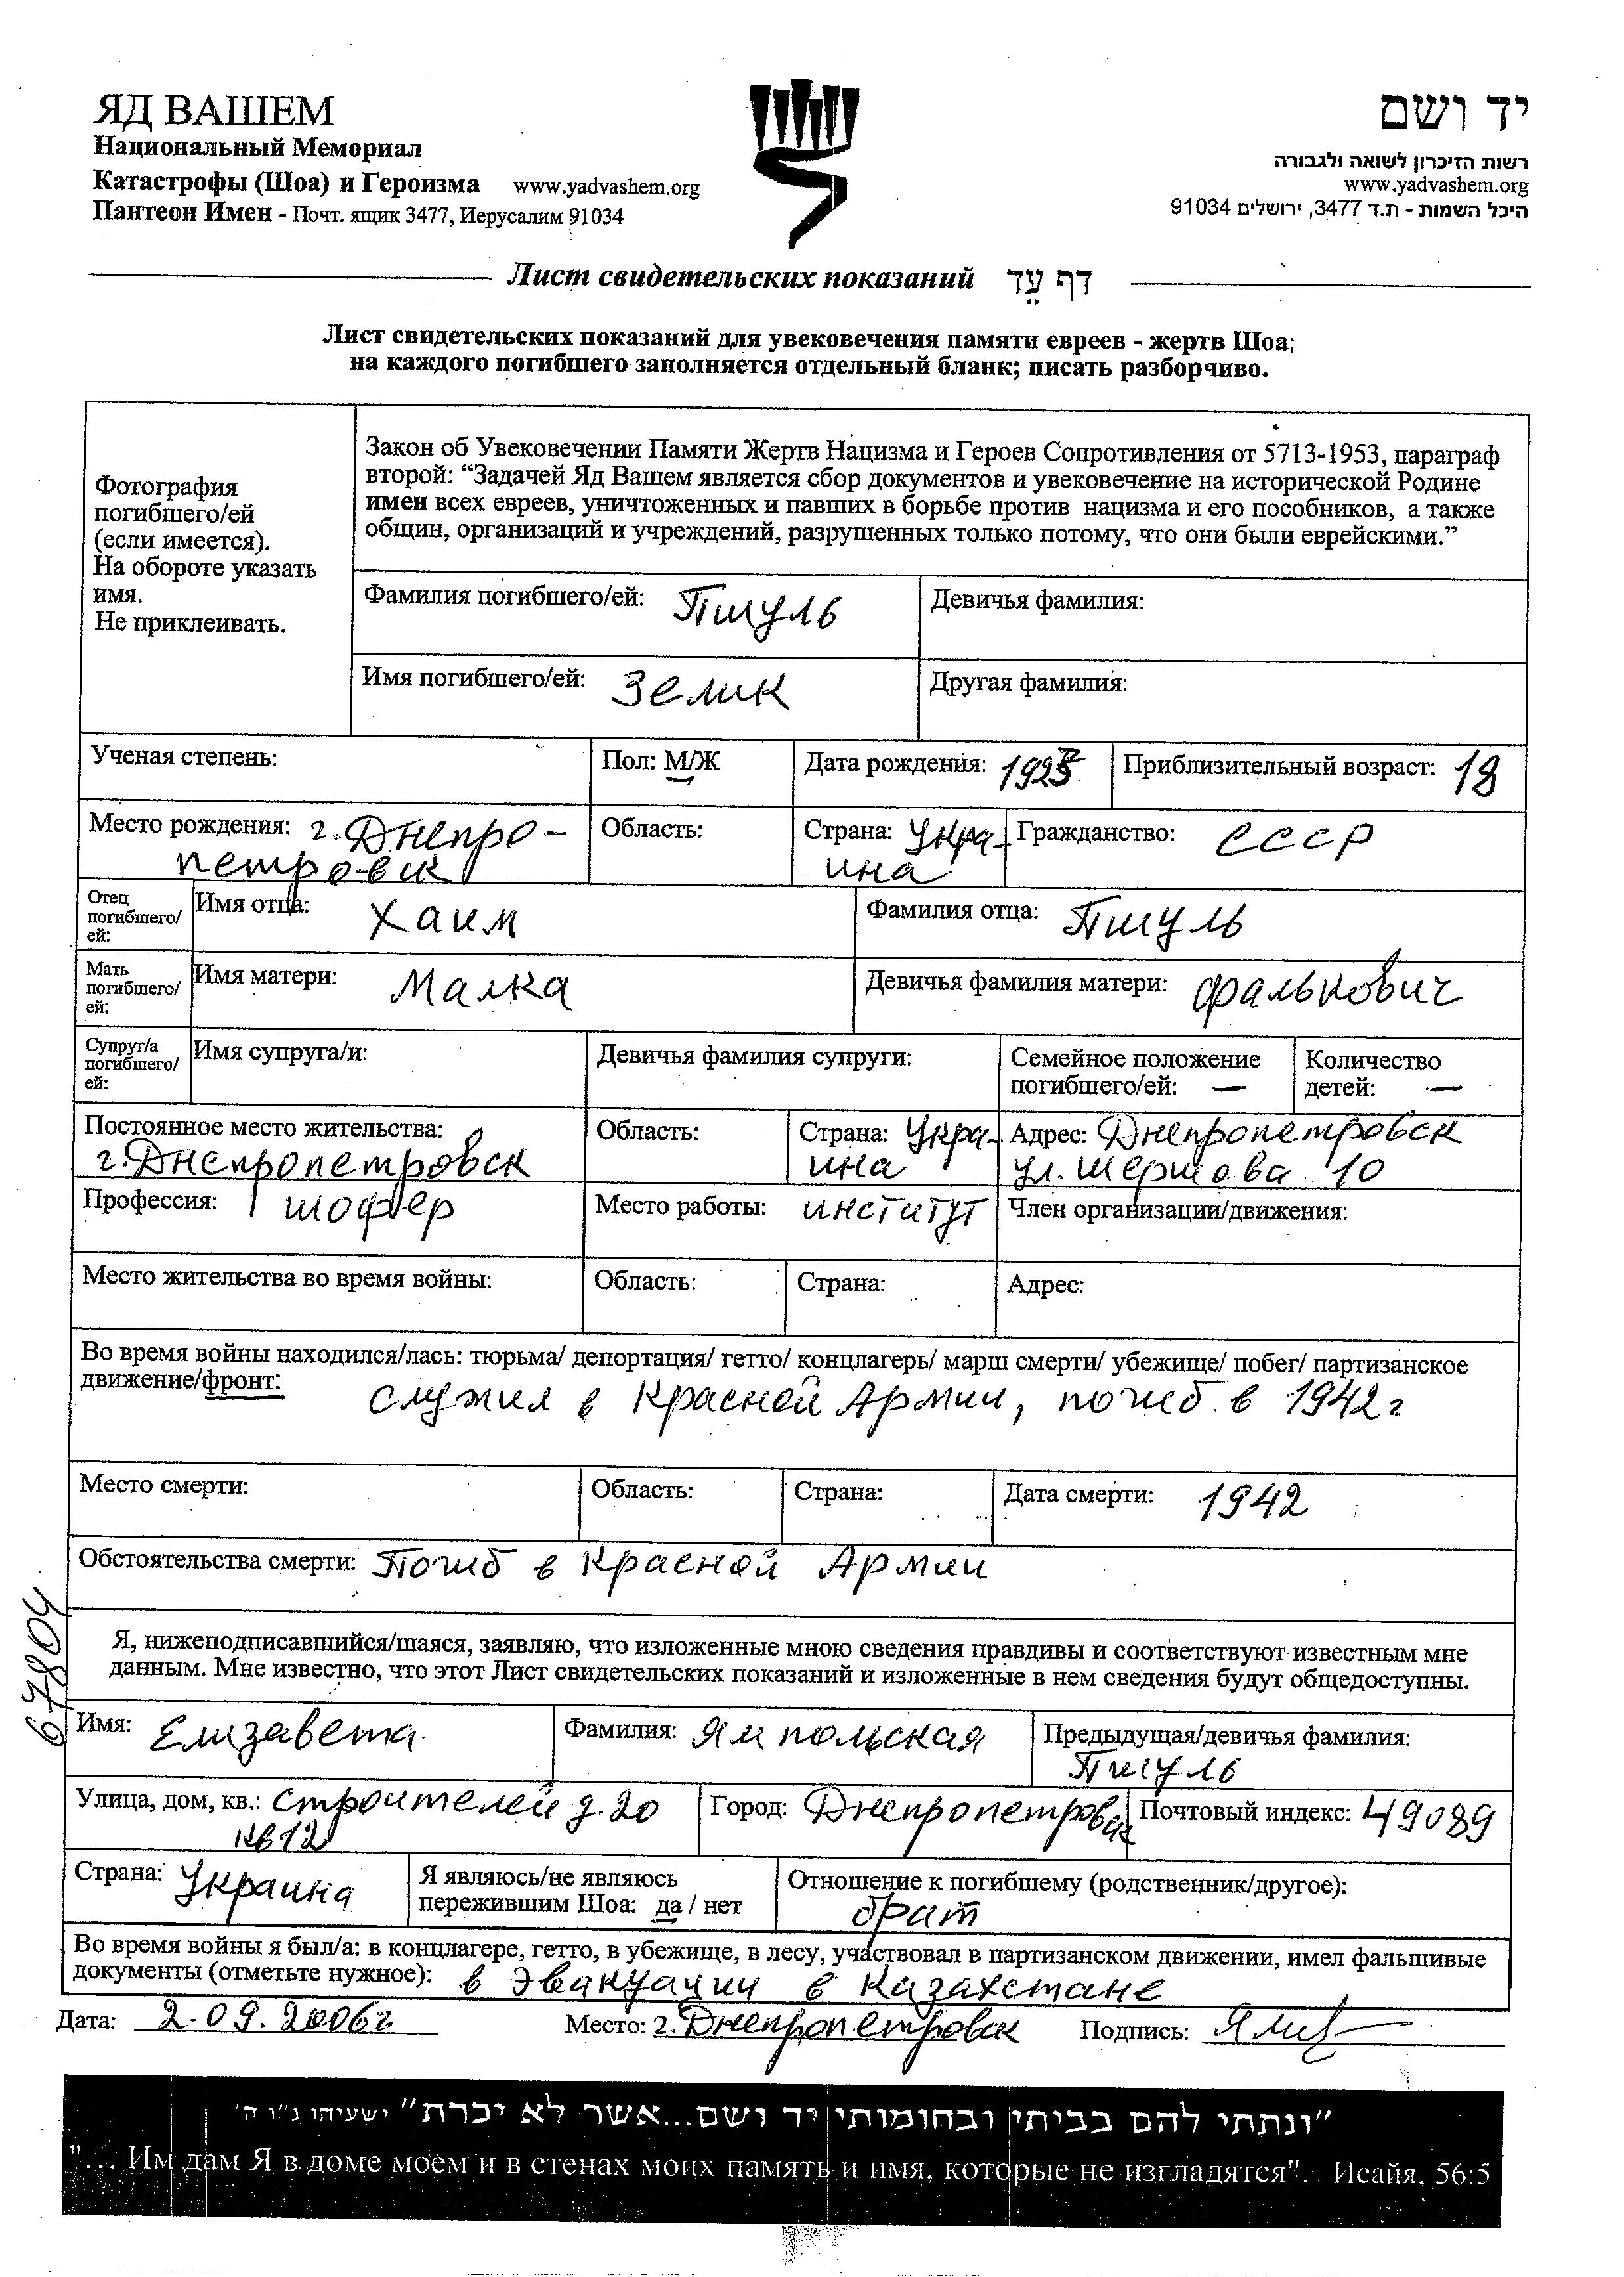 ЯД ВАШЕМ
Национальный Мемориал
Катастрофы (Шоа) и Героизма www.yadvashem.org
Пантеон Имен - Почт. ящик 3477, Иерусалим 91034
יד ושם
רשות הזיכרון לשואה ולגבורה
www.yadvashem.org
היכל השמות - ת.ד 3477, ירושלים 91034
Лист свидетельских показаний דף עֵד
Лист свидетельских показаний для увековечения памяти евреев - жертв Шоа;
на каждого погибшего заполняется отдельный бланк; писать разборчиво.
Фотография
погибшего/ей
(если имеется).
На обороте указать
имя.
Не приклеивать.
Закон об Увековечении Памяти Жертв Нацизма и Героев Сопротивления от 5713-1953, параграф
второй: “Задачей Яд Вашем является сбор документов и увековечение на исторической Родине
имен всех евреев, уничтоженных и павших в борьбе против нацизма и его пособников, а также
общин, организаций и учреждений, разрушенных только потому, что они были еврейскими.”
Фамилия погибшего/ей: Пшуль Девичья фамилия:
Имя погибшего/ей: Зелик Другая фамилия:
Ученая степень: Пол: М/Ж Дата рождения: Приблизительный возраст: 18
Место рождения: г. Днепро- Область: Страна: Укра- Гражданство: СССР
петровск ина
Отец
погибшего/
ей:
Имя отца: Хаим Фамилия отца: Пшуль
Мать
погибшего/
ей:
Имя матери: Малка Девичья фамилия матери: Фалькович
Супруг/а
погибшего/
ей:
Имя супруга/и: Девичья фамилия супруги: Семейное положение Количество
погибшего/ей: — детей: —
Постоянное место жительства: Область: Страна: Укра- Адрес: Днепропетровск
г. Днепропетровск ина ул. Шершова 10
Профессия: шофер Место работы: институт Член организации/движения:
Место жительства во время войны: Область: Страна: Адрес:
Во время войны находился/лась: тюрьма/ депортация/ гетто/ концлагерь/ марш смерти/ убежище/ побег/ партизанское
движение/фронт: служил в Красной Армии, погиб в 1942 г
Место смерти: Область: Страна: Дата смерти: 1942
Обстоятельства смерти: Погиб в Красной Армии
67804
Я, нижеподписавшийся/шаяся, заявляю, что изложенные мною сведения правдивы и соответствуют известным мне
данным. Мне известно, что этот Лист свидетельских показаний и изложенные в нем сведения будут общедоступны.
Имя: Елизавета Фамилия: Ямпольская Предыдущая/девичья фамилия:
Пшуль
Улица, дом, кв.: Строителей д. 20 Город: Днепропетровск Почтовый индекс: 49089
кв 12
Страна: Украина Я являюсь/не являюсь Отношение к погибшему (родственник/другое):
пережившим Шоа: да / нет брат
Во время войны я был/а: в концлагере, гетто, в убежище, в лесу, участвовал в партизанском движении, имел фальшивые
документы (отметьте нужное): в эвакуации в Казахстане
Дата: 2.09.2006 г Место: г. Днепропетровск Подпись:
"ונתתי להם בביתי ובחומותי יד ושם...אשר לא יכרת" ישעיהו נ"ו ה'
"... Им дам Я в доме моем и в стенах моих память и имя, которые не изгладятся". Исайя, 56:5